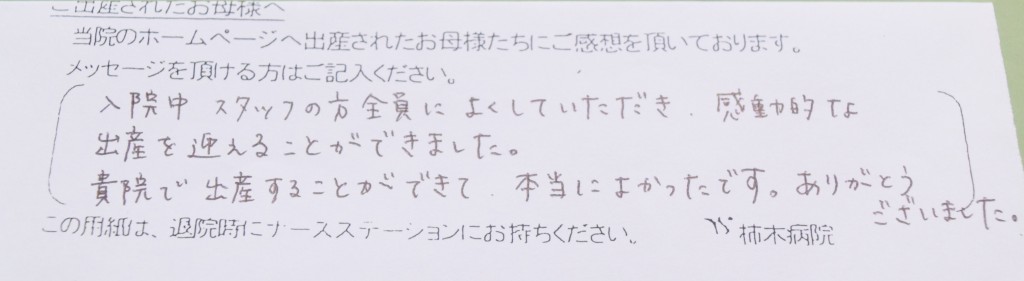 ご出産されたお母様へ
当院のホームページへ出産されたお母様たちにご感想を頂いております。
メッセージを頂ける方はご記入ください。
入院中 スタッフの方全員に よくしていただき、感動的な
出産を迎えることができました。
貴院で出産することができて、本当によかったです。ありがとう
ございました。
この用紙は、退院時にナースステーションにお持ちください。 柿木病院